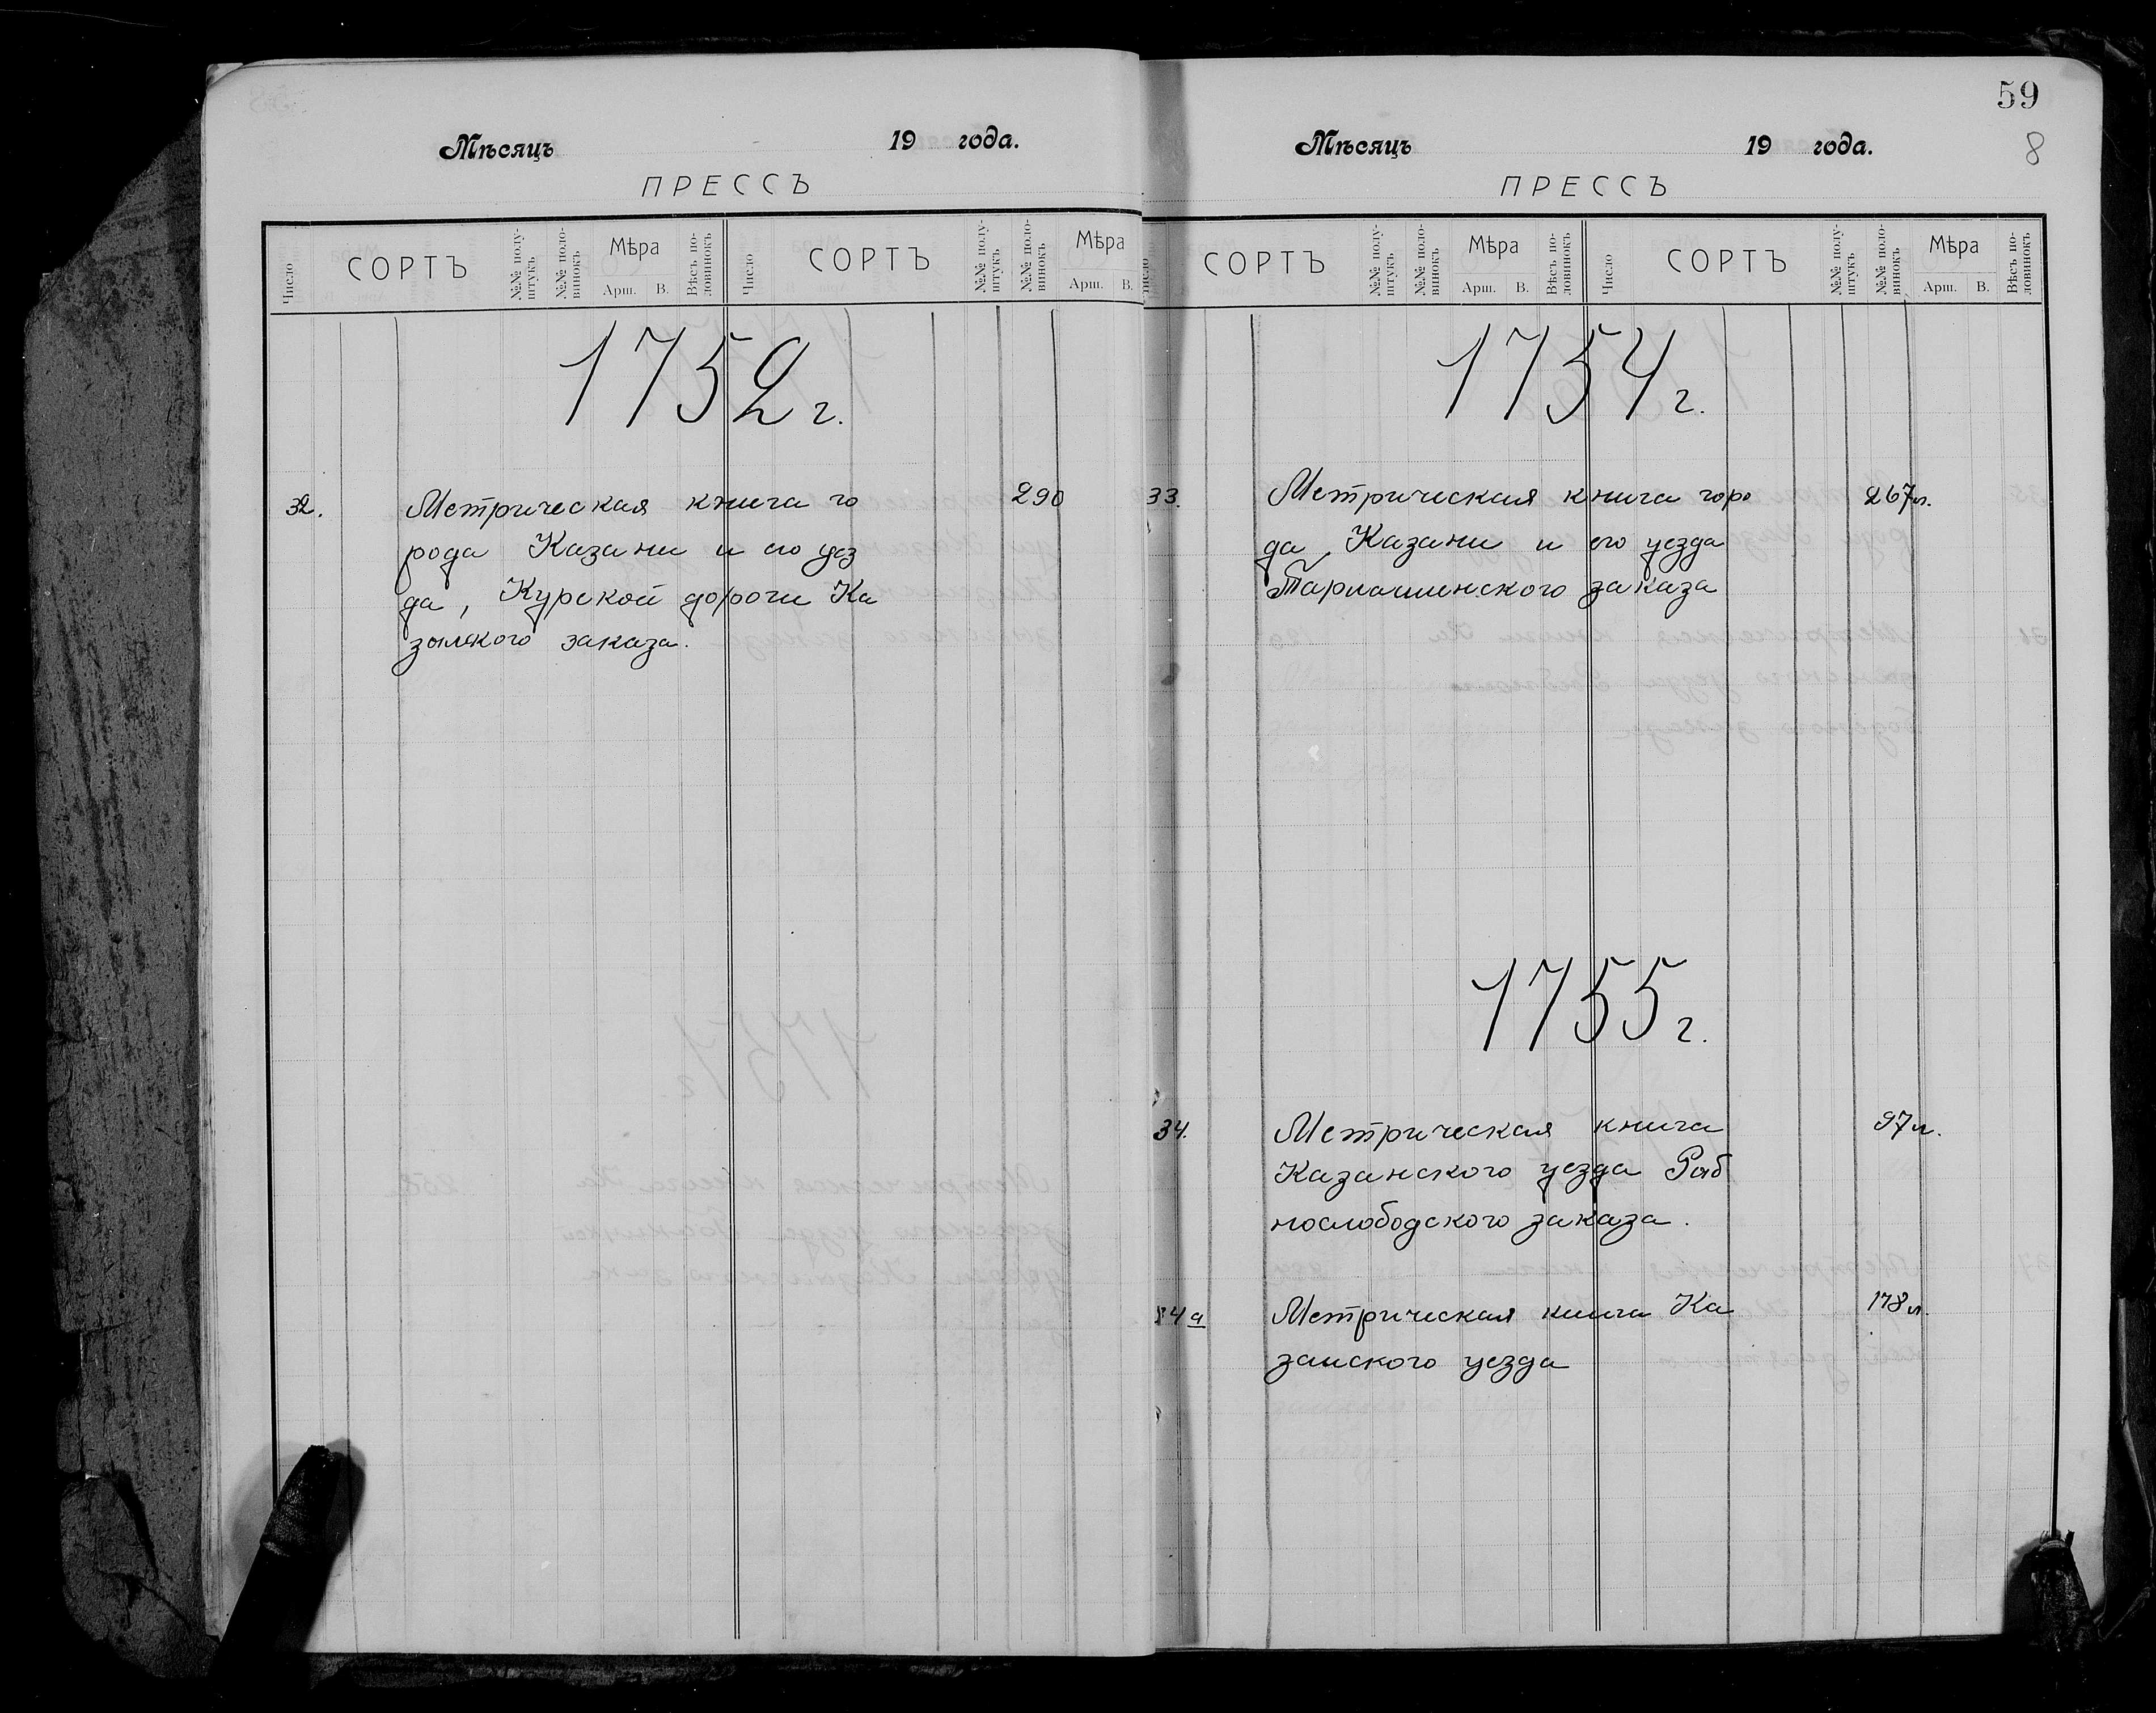 59
8
Мѣсяцъ 19 года.
ПРЕССЪ
Число СОРТЪ №№ полу-штукъ №№ поло-винокъ Мѣра Арш. В. Вѣсъ по-ловинокъ Число СОРТЪ №№ полу-штукъ №№ поло-винокъ Мѣра Арш. В.
1752 г.
32. Метрическая книга го 290
рода Казани и его уез
да, Курской дороги Ка
зылского заказа.
Мѣсяцъ 19 года.
ПРЕССЪ
Число СОРТЪ №№ полу-штукъ №№ поло-винокъ Мѣра Арш. В. Вѣсъ по-ловинокъ Число СОРТЪ №№ полу-штукъ №№ поло-винокъ Мѣра Арш. В. Вѣсъ по-ловинокъ
1754 г.
33. Метрическая книга горо 267 л.
да, Казани и его уезда
заказа
1755 г.
34. Метрическая книга 97 л.
Казанского уезда Рыб
нослободского заказа.
34 а Метрическая книга Ка 178 л.
занского уезда